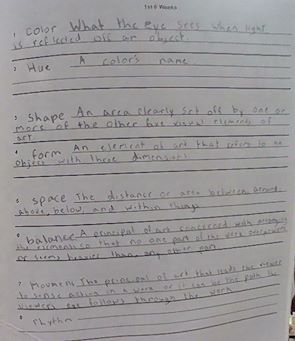 1st 6 Weeks
1 Color What the eye sees when light
is reflected off an object.
2 Hue A color's name
3 Shape An area clearly set off by one or
more of the other five visual elements of
art.
4 form An element of art that refers to an
object with three dimensions
5 space The distance or area between, around,
above, below, and within things
6 balance A principal of art concerned with arranging
the elements so that no one part of the work overpowers
or seems heavier than any other part
7 Movement The principal of art that leads the viewer
to sense action in a work or it can be the path the
viewers eye follows through the work
8 rhythm